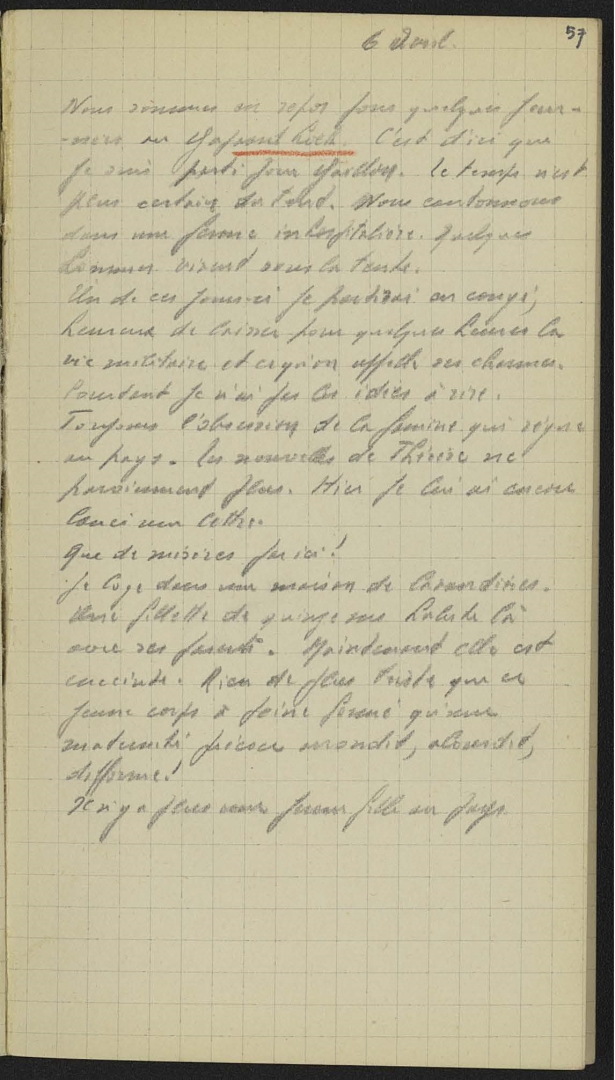 57
6 Avril.
Nous sommes en repos pour quelques jour-
-nées au C'est d'ici que
je suis parti pour Gaillon. Le temps n'est
plus certain du tout. Nous cantonnons
dans une ferme inhospitalière. Quelques
hommes vivent sous la tente.
Un de ces jours-ci je partirai en congé,
heureux de laisser pour quelques heures la
vie militaire et ce qu'on appelle ses charmes.
Pourtant je n'ai pas les idées à rire.
Toujours l'obsession de la famine qui règne
au pays. Les nouvelles de Thérèse ne
parviennent plus. Hier je lui ai encore
lancé une lettre.
Que de misères par ici!
Je loge dans une maison de lavandières.
Une fillette de quinze ans habite là
avec ses parents. Maintenant elle est
enceinte. Rien de plus triste que ce
jeune corps à peine formé qu'une
maternité précoce arrondit, alourdit,
difforme!
Il n'y a plus une jeune fille au pays